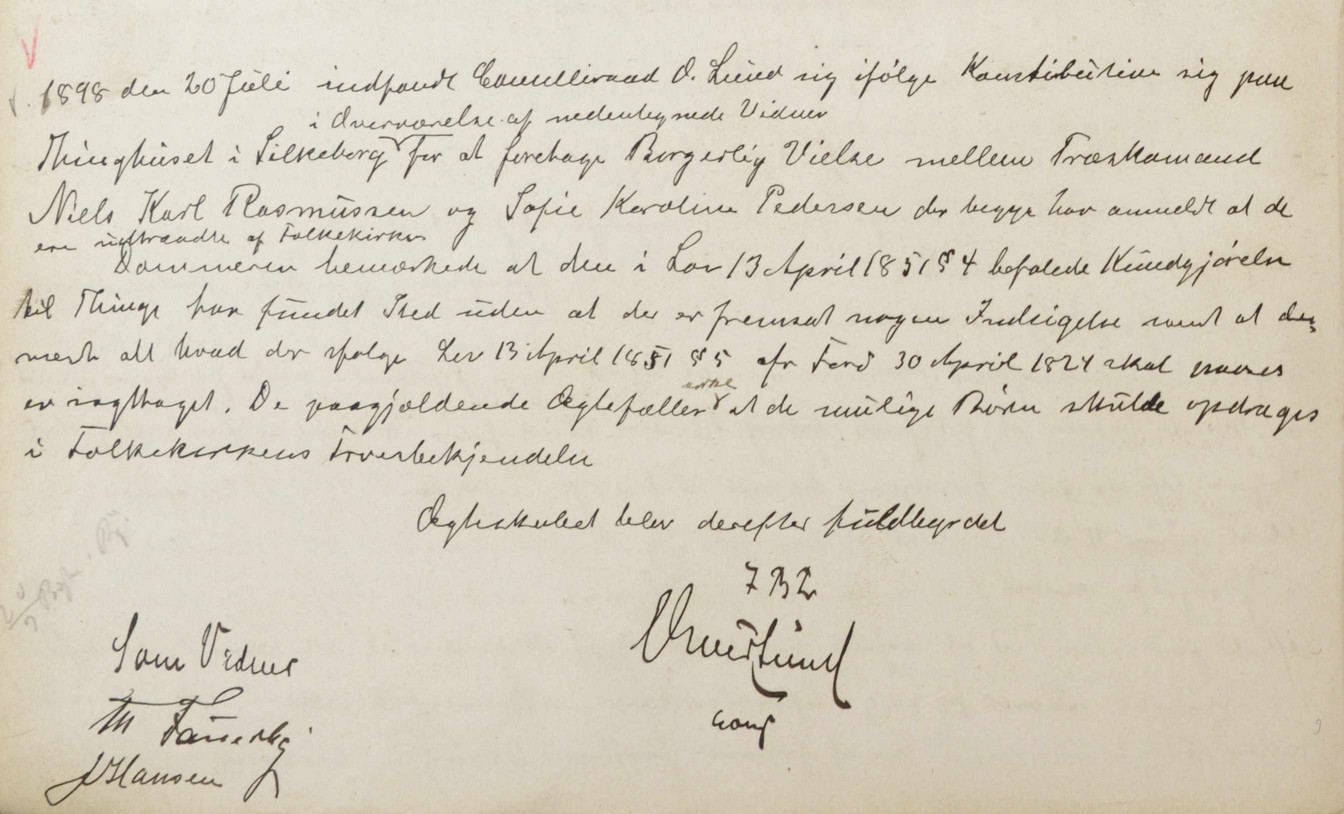 1898 den 20 Juli indfandt Cancelliraad O. Lund sig ifølge Konstitution sig paa
i Overværelse af nedentegnede Vidner
Thinghuset i Silkeborg for at foretage Borgerlig Vielse mellem Træskomand
Niels Karl Rasmussen og Sofie Karoline Pedersen der begge har anmeldt at de
ere udtraadte af Folkekirken
Dommeren bemærkede at den i Lov 13 April 1851 § 4 befalede Kundgjørelse
til Thinge har fundet Sted uden at der er fremsat nogen Indsigelse samt at
alt hvad der ifølge Lov 13 April 1851 § 5 cfr Ford 30 April 1824 skal
er iagttaget. De paagjældende Ægtefæller at de mulige Børn skulde opdrages
i Folkekirkens Troesbekjendelse
Ægteskabet blev derefter fuldbyrdet
Som Vidner
Th
J Hansen
Lund
const